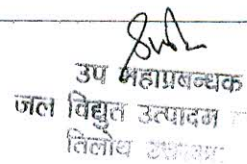 उप महाप्रबन्धक
जल विद्युत उत्पादन
तिलोथ